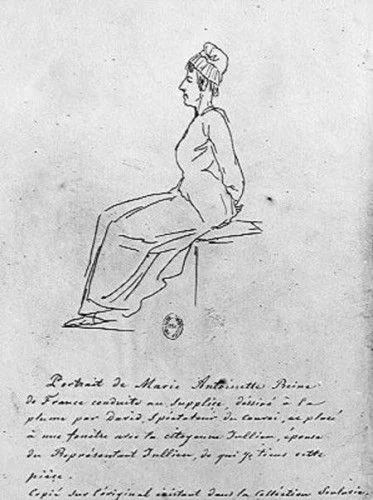 Portrait de Marie Antoinette Reine
de France conduite au supplice, dessiné à la
plume par David, Spectateur du Convoi, et placé
à une fenêtre avec la citoyenne Jullien, épouse
du Représentant Jullien, de qui je tiens cette
pièce.
Copié sur l'original existant dans la collection Soulavie